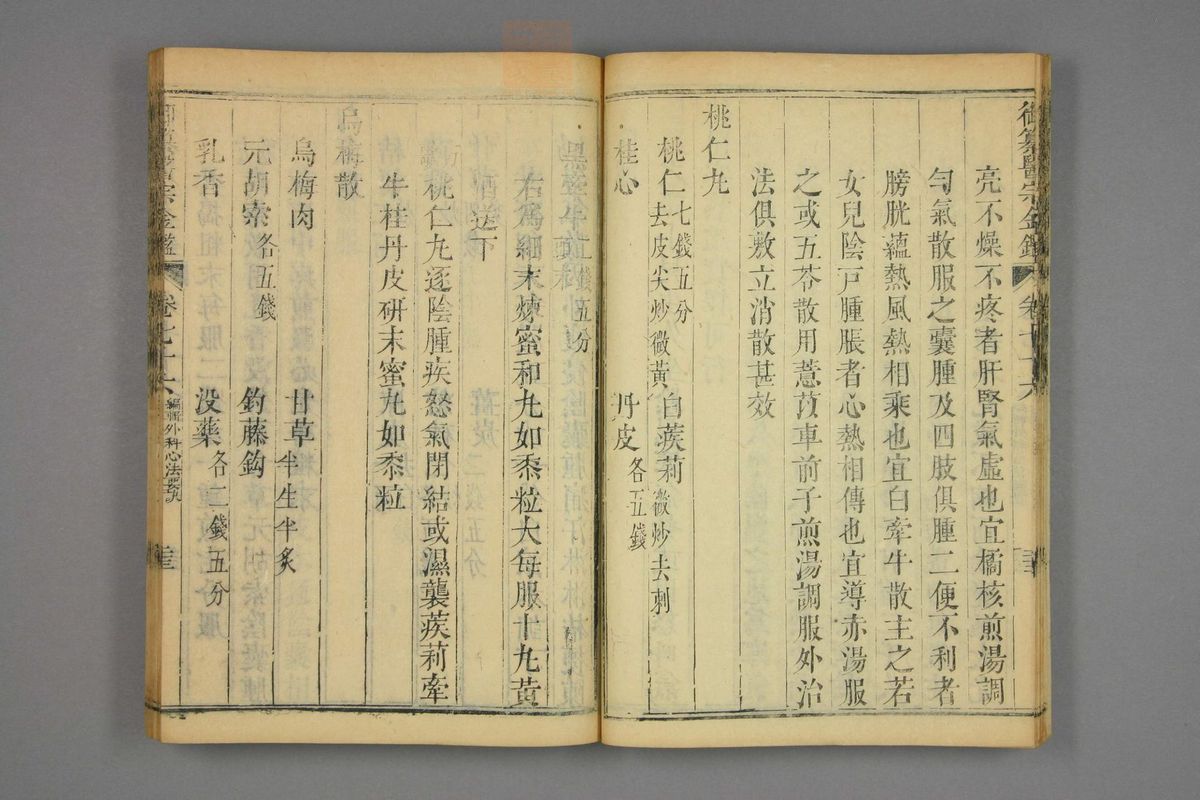 御纂醫宗金鑑 卷七十六 三十
亮不燥不疼者肝腎氣虛也宜橘核煎湯調
勻氣散服之囊腫及四肢俱腫二便不利者
膀胱蘊熱風熱相乘也宜白牽牛散主之若
女兒陰戶腫脹者心熱相傳也宜導赤湯服
之或五苓散用薏苡車前子煎湯調服外治
法俱敷立消散甚效
桃仁丸
桃仁七錢五分去皮尖炒微黃 白蒺莉微炒去刺
桂心 丹皮各五錢
黑牽牛頭末二錢五分
右爲細末煉蜜和丸如黍粒大每服十丸黃
酒送下
桃仁丸逐陰腫疾怒氣閉結或濕襲蒺莉牽
牛桂丹皮研末蜜丸如黍粒
烏梅散
烏梅肉 甘草半生半炙
元胡索各五錢 鈎藤鈎
乳香 沒藥各二錢五分
御纂醫宗金鑑 卷七十六 編輯外科心法要訣